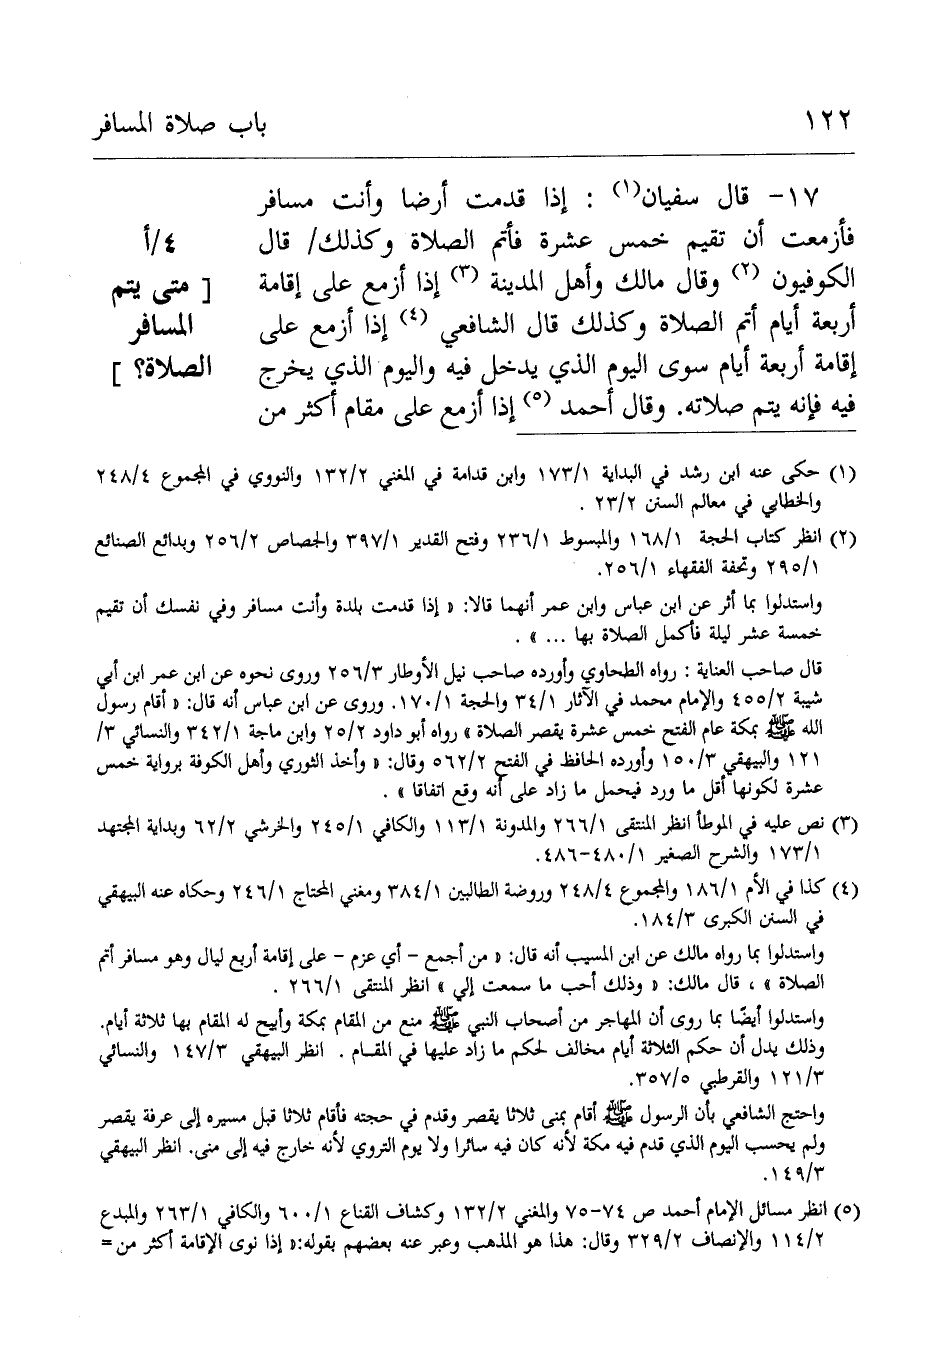 ١٢٢ باب صلاة المسافر
١٧- قال سفيان(١) : إذا قدمت أرضا وأنت مسافر
فأزمعت أن تقيم خمس عشرة فأتم الصلاة وكذلك/ قال
٤/أ
الكوفيون (٢) وقال مالك وأهل المدينة (٣) إذا أزمع على إقامة
[ متى يتم
أربعة أيام أتم الصلاة وكذلك قال الشافعي (٤) إذا أزمع على
المسافر
إقامة أربعة أيام سوى اليوم الذي يدخل فيه واليوم الذي يخرج
الصلاة؟ ]
فيه فإنه يتم صلاته. وقال أحمد (٥) إذا أزمع على مقام أكثر من
(١) حكى عنه ابن رشد في البداية ١٧٣/١ وابن قدامة في المغني ١٣٢/٢ والنووي في المجموع ٢٤٨/٤
والخطابي في معالم السنن ٢٣/٢ .
(٢) انظر كتاب الحجة ١٦٨/١ والمبسوط ٢٣٦/١ وفتح القدير ٣٩٧/١ والجصاص ٢٥٦/٢ وبدائع الصنائع
٢٩٥/١ وتحفة الفقهاء ٢٥٦/١.
واستدلوا بما أثر عن ابن عباس وابن عمر أنهما قالا: « إذا قدمت بلدة وأنت مسافر وفي نفسك أن تقيم
خمسة عشر ليلة فأكمل الصلاة بها ... » .
قال صاحب العناية : رواه الطحاوي وأورده صاحب نيل الأوطار ٢٥٦/٣ وروى نحوه عن ابن عمر ابن أبي
شيبة ٤٥٥/٢ والإمام محمد في الآثار ٣٤/١ والحجة ١٧٠/١. وروى عن ابن عباس أنه قال: « أقام رسول
الله ﷺ بمكة عام الفتح خمس عشرة يقصر الصلاة » رواه أبو داود ٢٥/٢ وابن ماجة ٣٤٢/١ والنسائي ٣/
١٢١ والبيهقي ١٥٠/٣ وأورده الحافظ في الفتح ٥٦٢/٢ وقال: « وأخذ الثوري وأهل الكوفة برواية خمس
عشرة لكونها أقل ما ورد فيحمل ما زاد على أنه وقع اتفاقا » .
(٣) نص عليه في الموطأ انظر المنتقى ٢٦٦/١ والمدونة ١١٣/١ والكافي ٢٤٥/١ والخرشي ٦٢/٢ وبداية المجتهد
١٧٣/١ والشرح الصغير ٤٨٠/١-٤٨٦.
(٤) كذا في الأم ١٨٦/١ والمجموع ٢٤٨/٤ وروضة الطالبين ٣٨٤/١ ومغني المحتاج ٢٤٦/١ وحكاه عنه البيهقي
في السنن الكبرى ١٨٤/٣.
واستدلوا بما رواه مالك عن ابن المسيب أنه قال: « من أجمع - أي عزم - على إقامة أربع ليال وهو مسافر أتم
الصلاة » ، قال مالك: « وذلك أحب ما سمعت إلي » انظر المنتقى ٢٦٦/١ .
واستدلوا أيضًا بما روى أن المهاجر من أصحاب النبي ﷺ منع من المقام بمكة وأبيح له المقام بها ثلاثة أيام.
وذلك يدل أن حكم الثلاثة أيام مخالف لحكم ما زاد عليها في المقام . انظر البيهقي ١٤٧/٣ والنسائي
١٢١/٣ والقرطبي ٣٥٧/٥.
واحتج الشافعي بأن الرسول ﷺ أقام بمنى ثلاثا يقصر وقدم في حجته فأقام ثلاثا قبل مسيره إلى عرفة يقصر
ولم يحسب اليوم الذي قدم فيه مكة لأنه كان فيه سائرا ولا يوم التروي لأنه خارج فيه إلى منى. انظر البيهقي
١٤٩/٣.
(٥) انظر مسائل الإمام أحمد ص ٧٤-٧٥ والمغني ١٣٢/٢ وكشاف القناع ٦٠٠/١ والكافي ٢٦٣/١ والمبدع
١١٤/٢ والإنصاف ٣٢٩/٢ وقال: هذا هو المذهب وعبر عنه بعضهم بقوله:« إذا نوى الإقامة أكثر من=